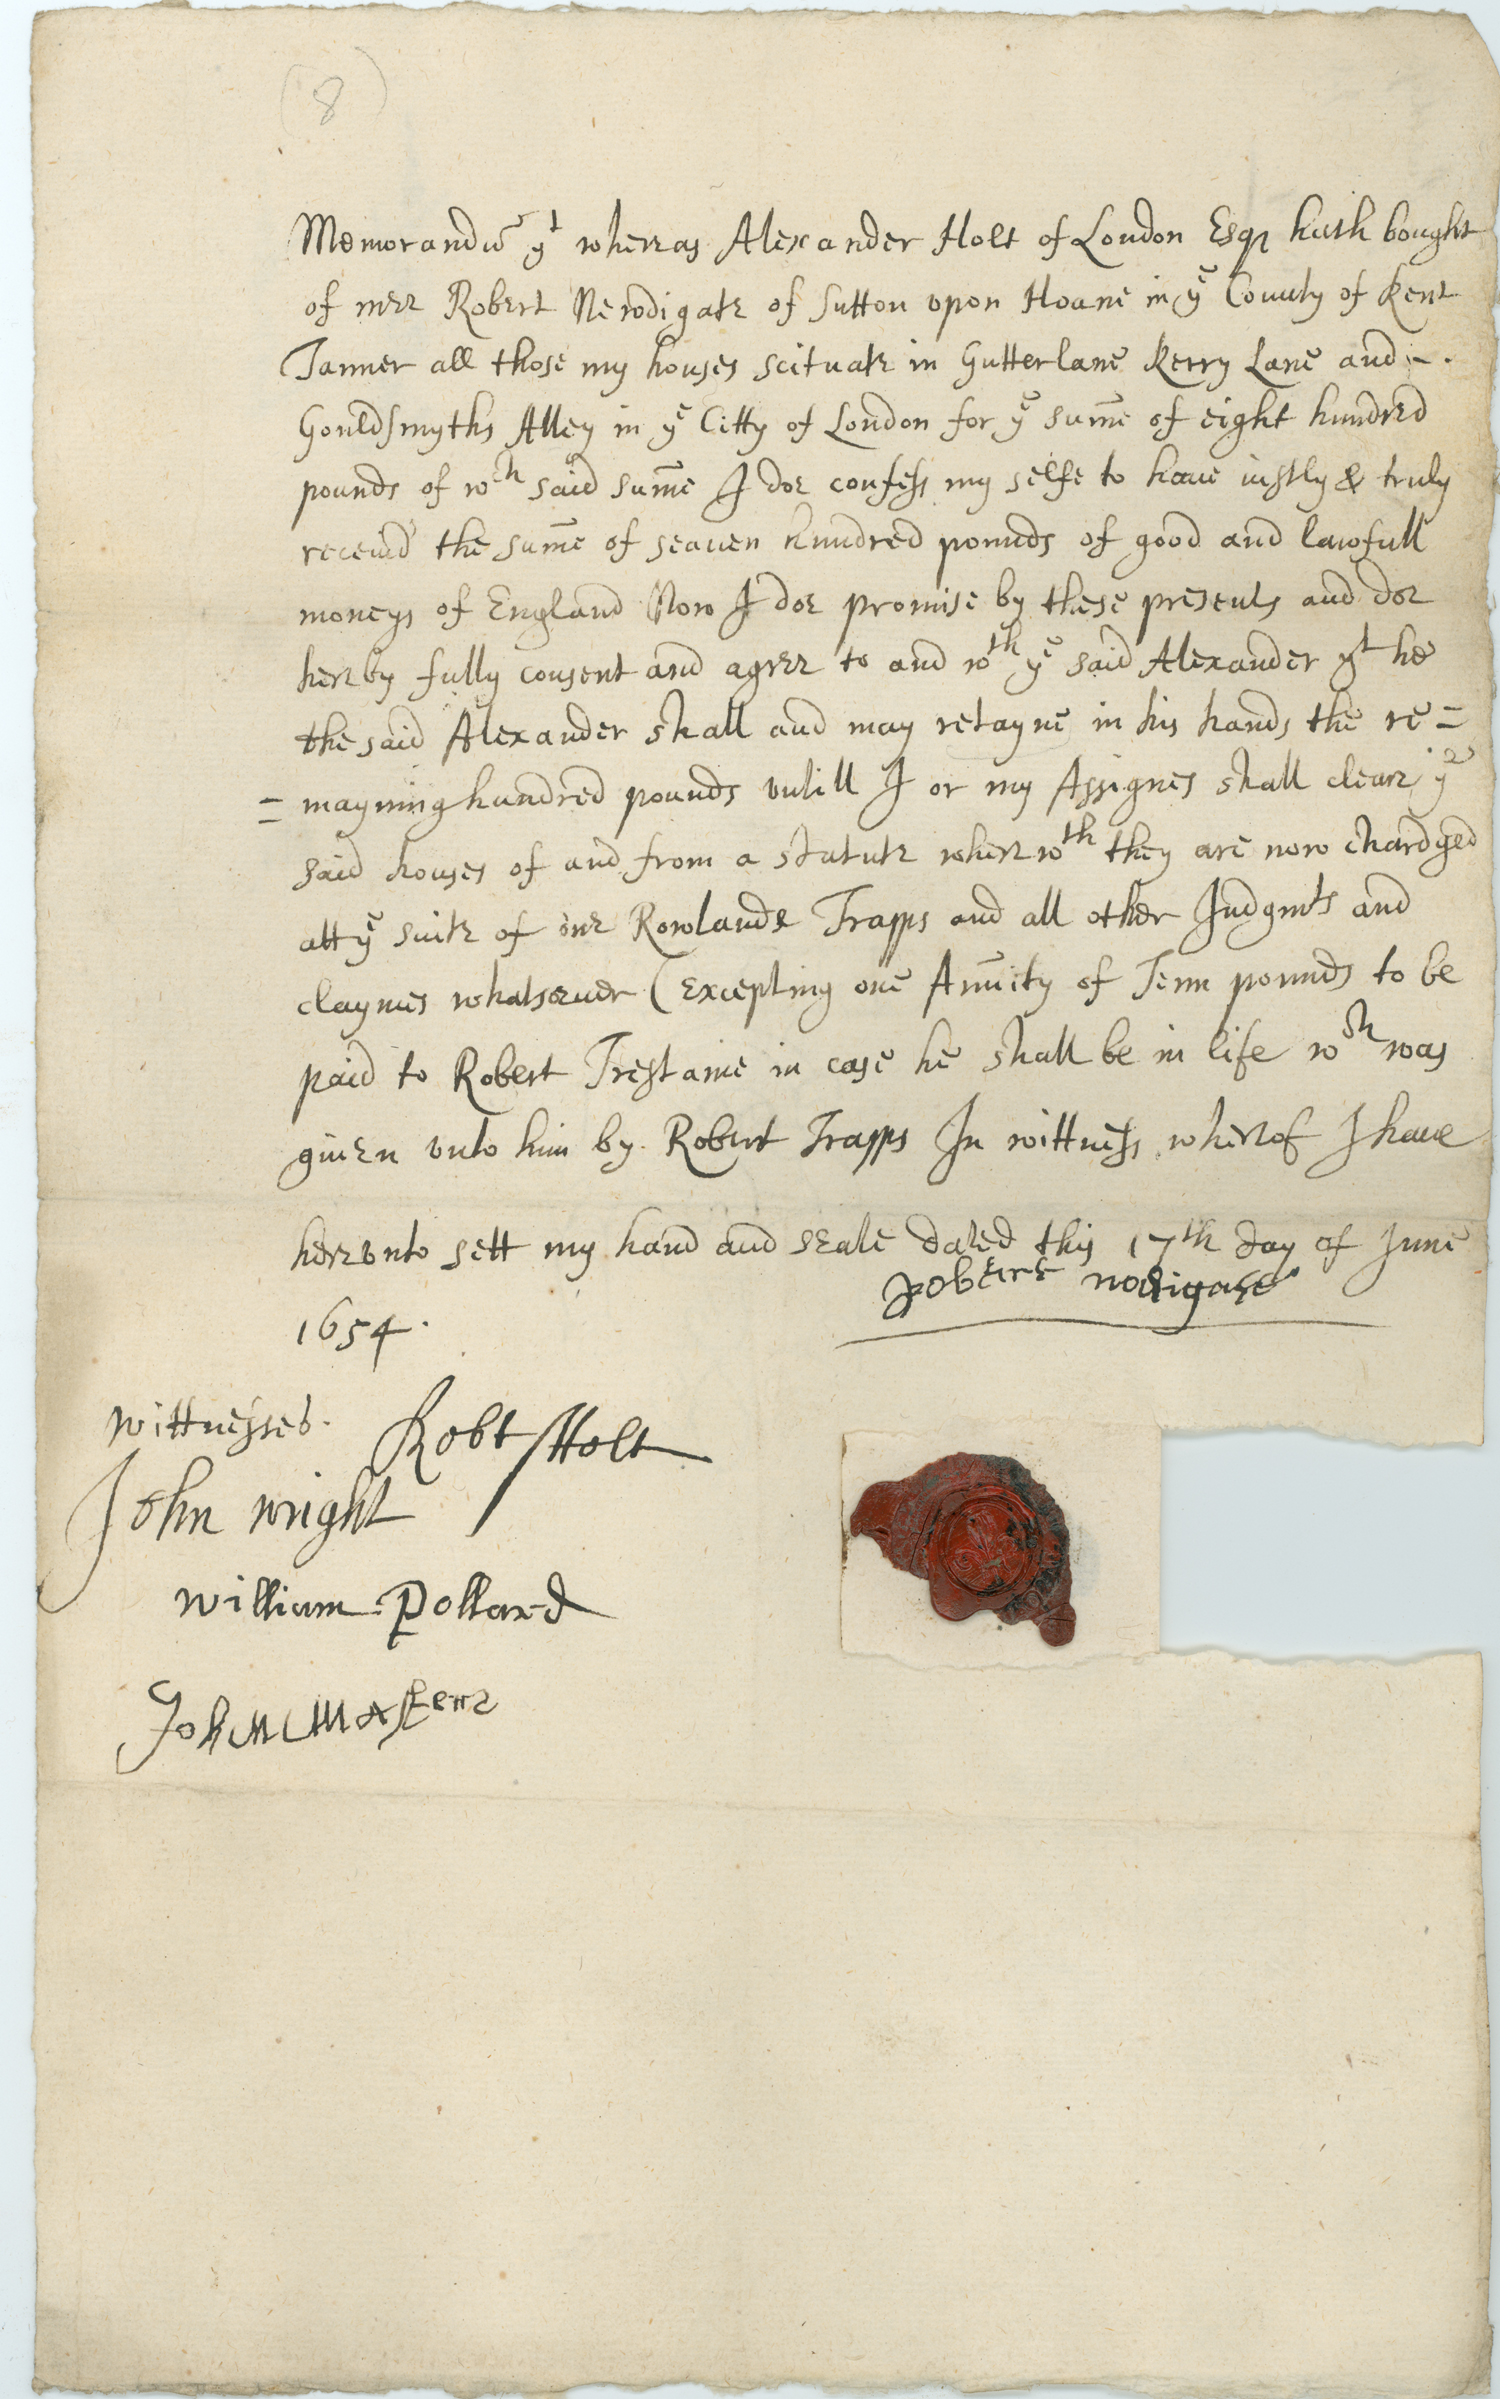 (8)
Memorandũ yt wheras Alexander Holt of London Esqr hath bought
of mee Robert Newdigate of Sutton vpon Hoane in ye County of Kent
Tanner all those my houses scituate in Gutterlane Kerry Lane and -.
Gouldsmyths Alley in ye Citty of London for ye sum̃e of eight hundred
pounds of wch said sum̃e I doe confess my selfe to haue iustly & truly
receiud the sum̃e of seauen hundred pounds of good and lawfull
moneys of England Now I doe promise by these presents and doe
hereby fully consent and agree to and wth ye said Alexander yt he
the said Alexander shall and may retayne in his hands the re=
=mayning hundred pounds vntill I or my Assignes shall cleare ye
said houses of and from a statute wherewth they are now chardged
att ye suite of one Rowlande Trapps and all other Judgmts and
claymes whatsoeuer (excepting one Anũity of Tenn pounds to be
paid to Robert Trestame in case he shall be in life wch was
giuen vnto him by Robert Trapps In wittness wherof I haue
herevnto sett my hand and seale dated this 17th day of June
1654.
Robert nodigate
wittnesses.
Robt Holt
John wright
william Pollard
John